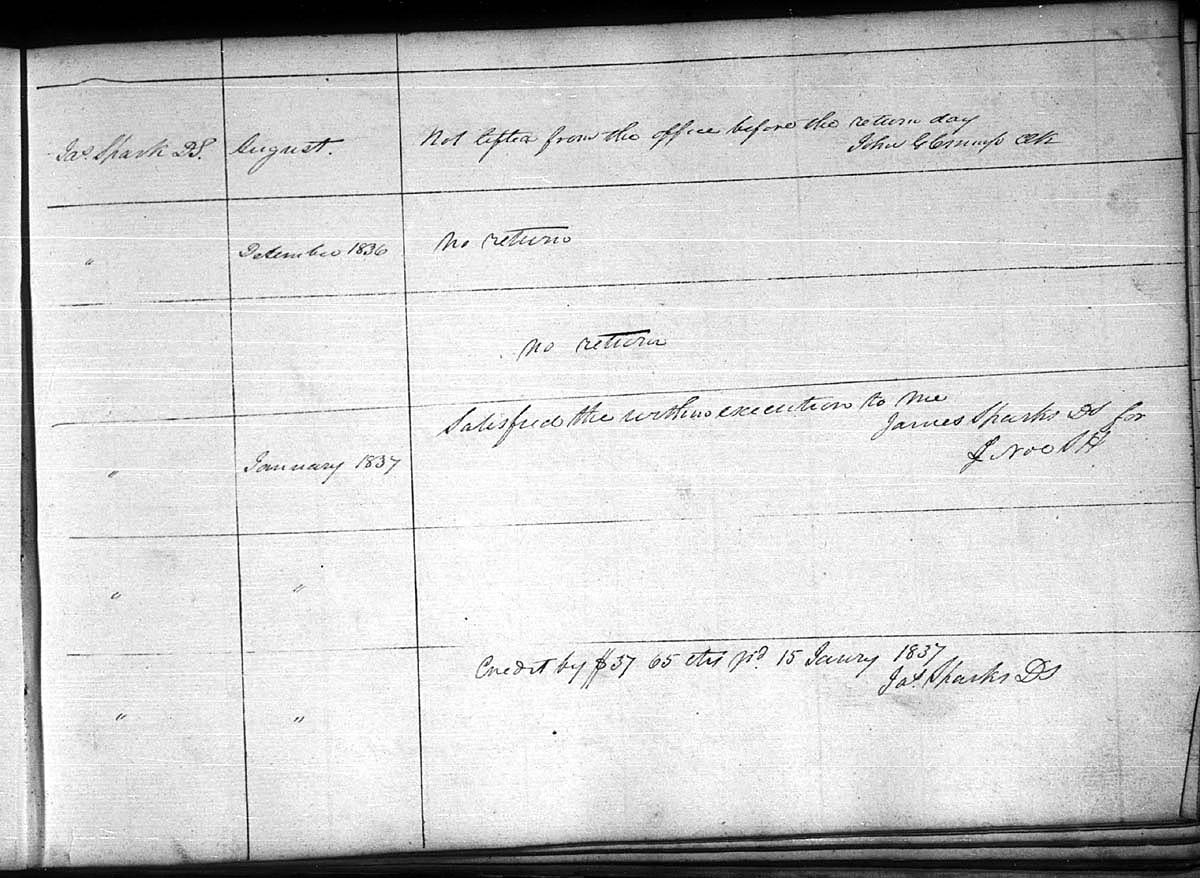 Jas Spark DS. August. Not lifted from the office before the return day
John G Crump Clk
" December 1836 No return
No return
Satisfied the within execution to me
James Sparks DS for
" January 1837
" "
Credit by $37 65 cts pd 15 Janry 1837
Jas. Sparks DS
" "